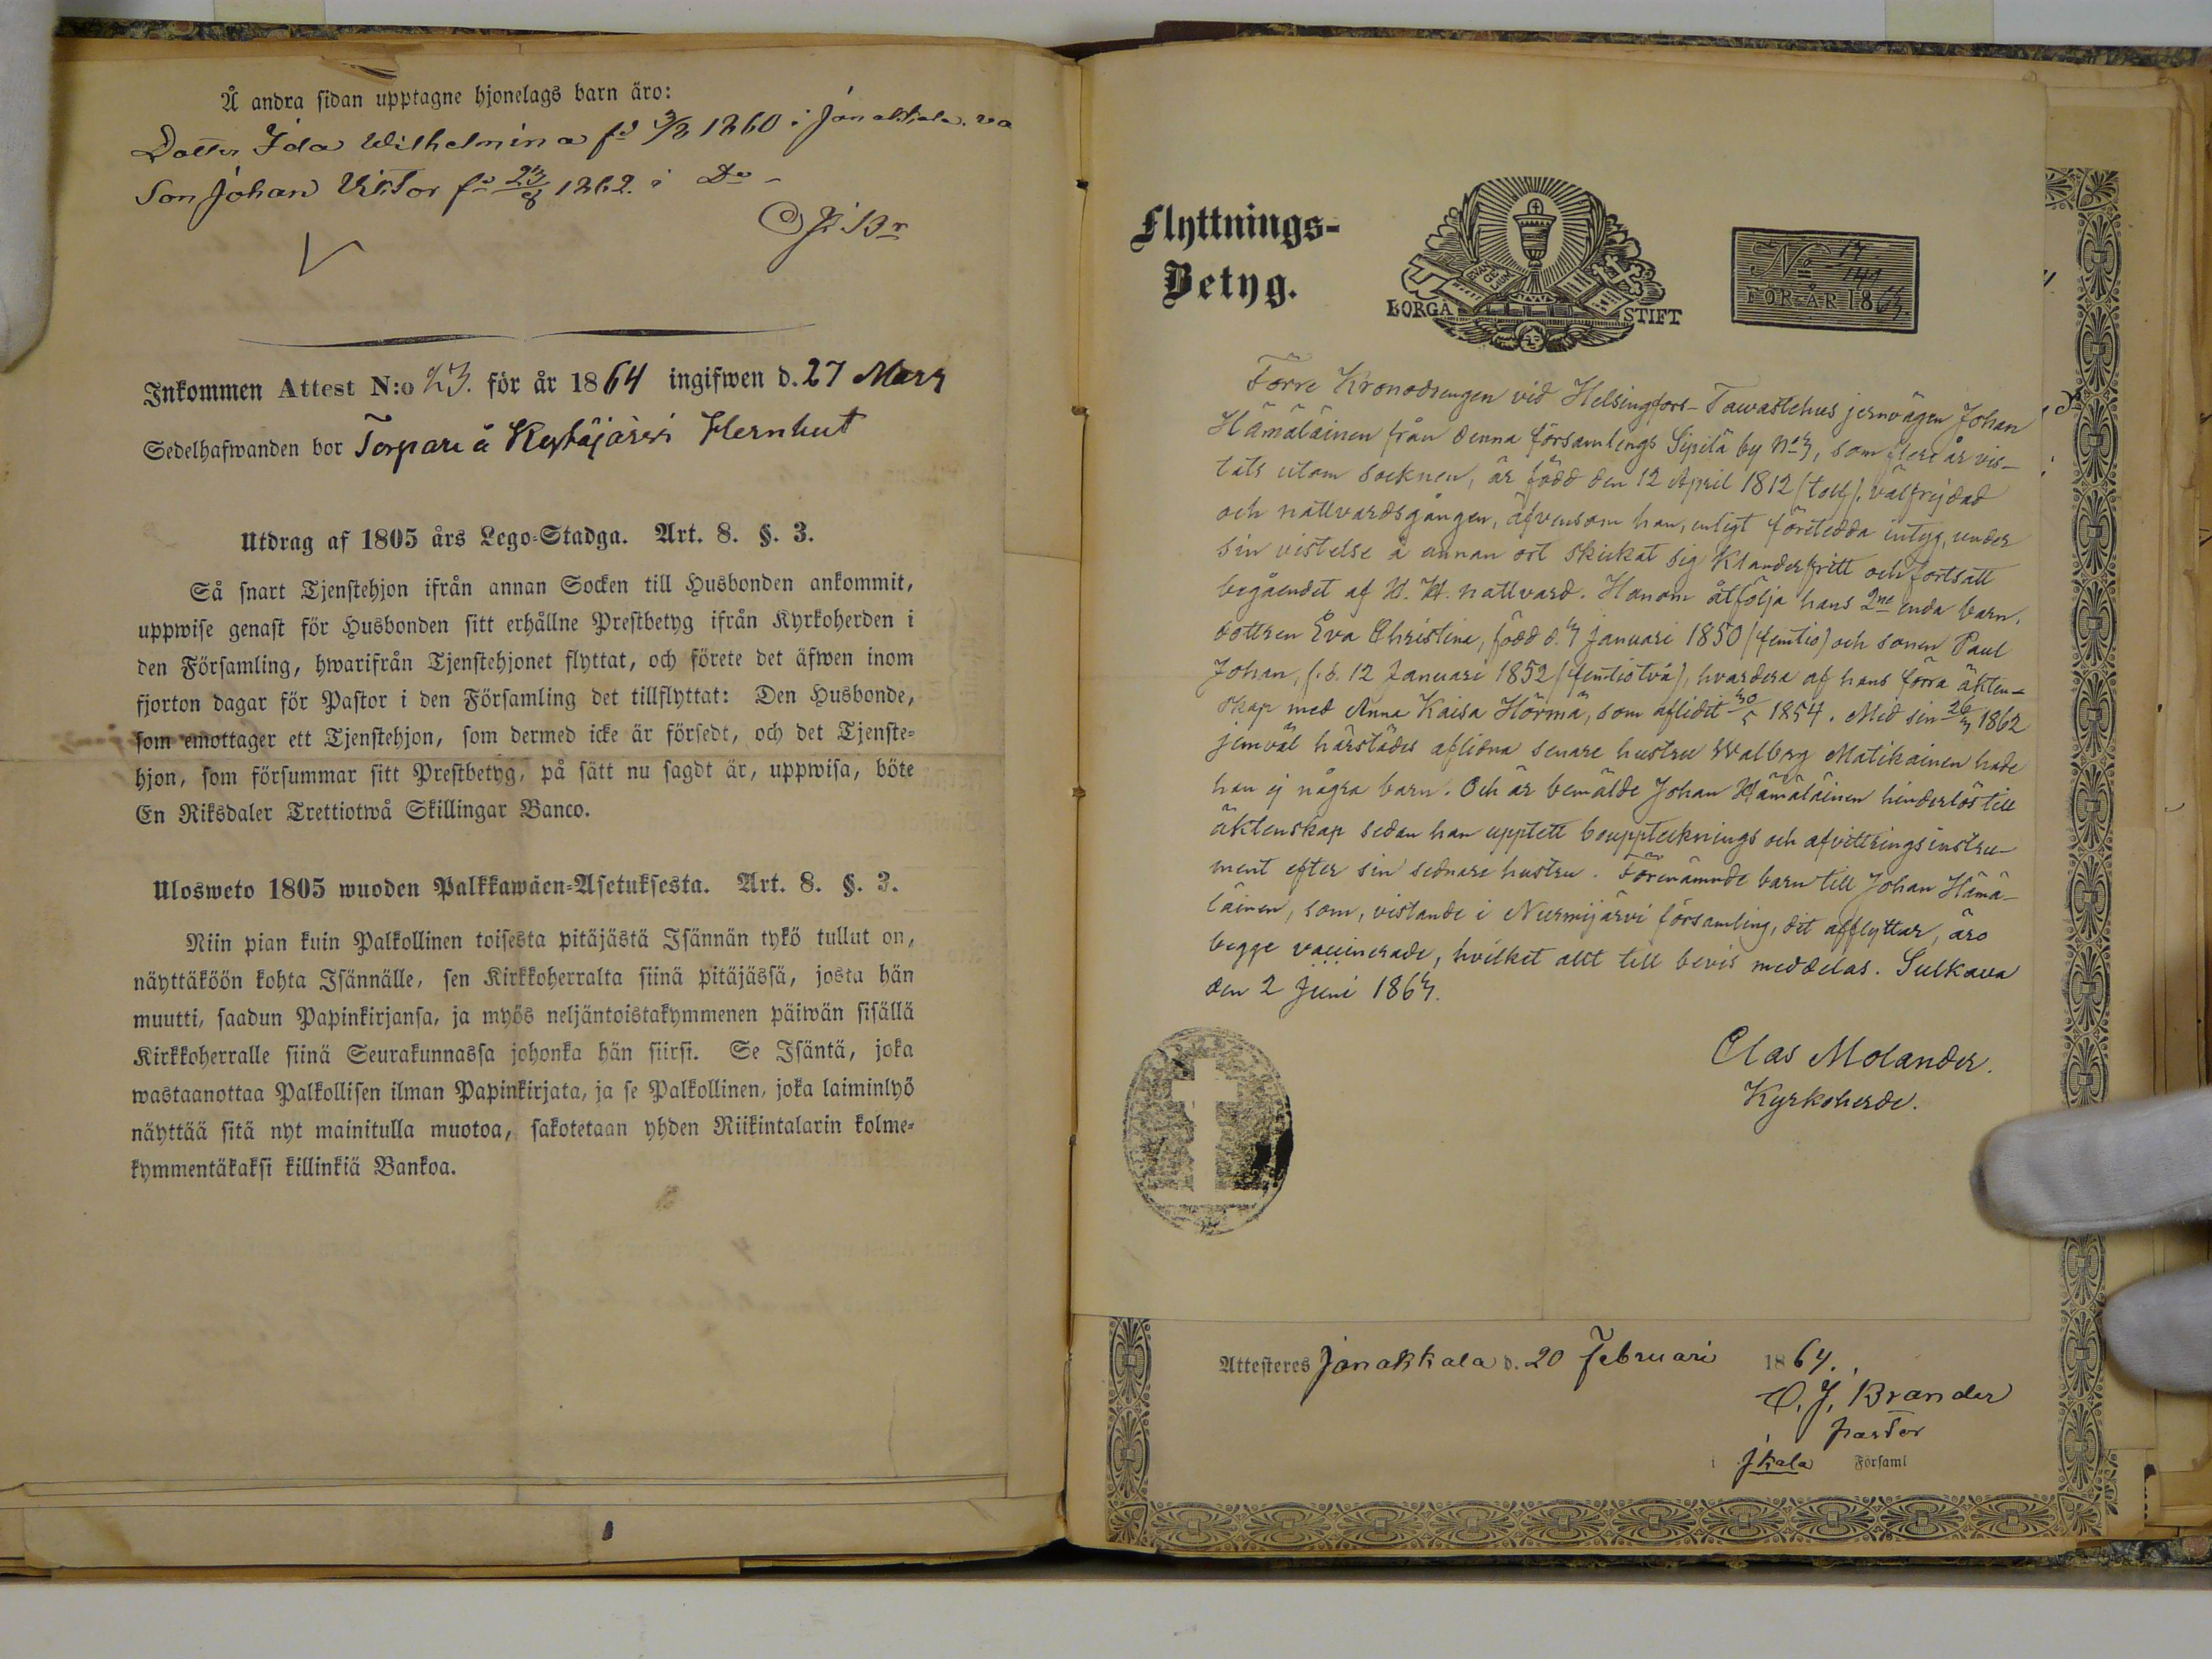 Å andra sidan upptagne hjonelags barn äro:
Dotter Ida Wilhelmina fd 3/3 1860 i Janakkala. va
Son Johan Viktor fd 23/8 1862. i Do -
Inkommen Attest N:o 23. för år 1864 ingifwen d. 27 Mars
Sedelhafwanden bor Torpare å Kytäjärvi Hernhut
Utdrag af 1805 års Lego-Stadga. Art. 8. §. 3.
Så snart Tjenstehjon ifrån annan Socken till Husbonden ankommit,
uppwise genast för Husbonden sitt erhållne Prestbetyg ifrån Kyrkoherden i
den Församling, hwarifrån Tjenstehjonet flyttat, och förete det äfwen inom
fjorton dagar för Pastor i den Församling det tillflyttat: Den Husbonde,
som emottager ett Tjenstehjon, som dermed icke är försedt, och det Tjenste-
hjon, som försummar sitt Prestbetyg, på sätt nu sagdt är, uppwisa, böte
En Riksdaler Trettiotwå Skillingar Banco.
Ulosweto 1805 wuoden Palkkawäen-Asetuksesta. Art. 8. §. 3.
Niin pian kuin Palkollinen toisesta pitäjästä Isännän tykö tullut on,
näyttäköön kohta Isännälle, sen Kirkkoherralta siinä pitäjässä, josta hän
muutti, saadun Papinkirjansa, ja myös neljäntoistakymmenen päiwän sisällä
Kirkkoherralle siinä Seurakunnassa johonka hän siirsi. Se Isäntä, joka
wastaanottaa Palkollisen ilman Papinkirjata, ja se Palkollinen, joka laiminlyö
näyttää sitä nyt mainitulla muotoa, sakotetaan yhden Riikintalarin kolme-
kymmentäkaksi killinkiä Bankoa.
Flyttnings-
Betyg.
EVANGELIUM
BORGÅ STIFT
No 17
141
FÖR ÅR 1863.
Förre Kronodrengen vid Helsingfors-Tawastehus jernvägen Johan
Hämäläinen från denna församlings Sipilä by No 3, som flere år vis-
tats utom socknen, är född den 12 April 1812 (tolf), välfrejdad
och nattvardsgången, äfvensom han, enligt företedda intyg, under
sin vistelse å annan ort skickat sig klanderfritt och fortsatt
begåendet af H. H. nattvard. Honom åtfölja hans 2ne enda barn,
dottren Eva Christina, född d. 3 Januari 1850 (femtio) och sonen Paul
Johan, f. d. 12 Januari 1852 (femtiotvå), hvardera af hans förra äkten-
skap med Anna Kaisa Hörmä, som aflidit 30/5 1854. Med sin 26/3 1862
jemväl härstädes aflidna senare hustru Walborg Matikainen hade
han ej några barn. Och är bemälde Johan Hämäläinen hinderlös till
äktenskap sedan han upptett bouppteknings och afvittringsinstru-
ment efter sin sednare hustru. Förenämnde barn till Johan Hämä-
läinen, som, vistande i Nurmijärvi församling, dit afflyttar, äro
begge vaccinerade, hvilket allt till bevis meddelas. Sulkava
den 2 Juni 1863.
Clas Molander.
Kyrkoherde.
Attesteres Janakkala d. 20 Februari 1864.
O. J. Brander
pastor
i Jkala Församl